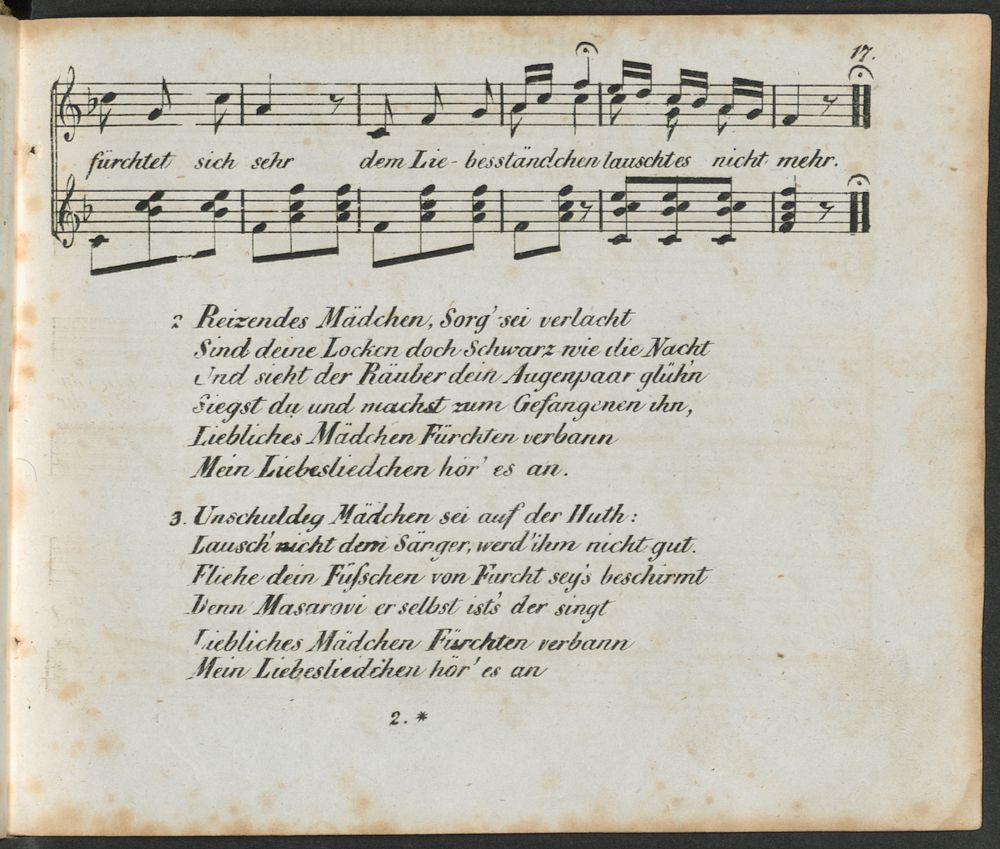 17.
fürchtet sich sehr dem Lie-besständchen lauscht es nicht mehr.
2 Reizendes Mädchen, Sorg' sei verlacht
Sind deine Locken doch Schwarz wie die Nacht
Und sieht der Räuber dein Augenpaar glüh'n
Siegst du und machst zum Gefangenen ihn,
Liebliches Mädchen Fürchten verbann
Mein Liebesliedchen hör' es an.
3. Unschuldig Mädchen sei auf der Huth:
Lausch' nicht dem Sänger, werd' ihm nicht gut.
Fliehe dein Füſschen von Furcht sey's beschirmt
Denn Masarovi er selbst ist's der singt
Liebliches Mädchen Fürchten verbann
Mein Liebesliedchen hör' es an
2. *